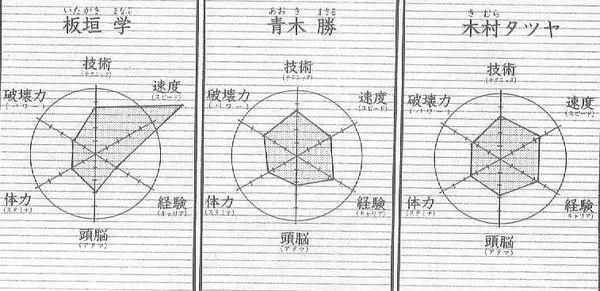 いたがき まなぶ
板垣 学
技術
(テクニック)
破壊力
(パワー)
速度
(スピード)
体力
(スタミナ)
経験
(キャリア)
頭脳
(アタマ)
あおき まさる
青木 勝
技術
(テクニック)
破壊力
(パワー)
速度
(スピード)
体力
(スタミナ)
経験
(キャリア)
頭脳
(アタマ)
きむら
木村タツヤ
技術
(テクニック)
破壊力
(パワー)
速度
(スピード)
体力
(スタミナ)
経験
(キャリア)
頭脳
(アタマ)